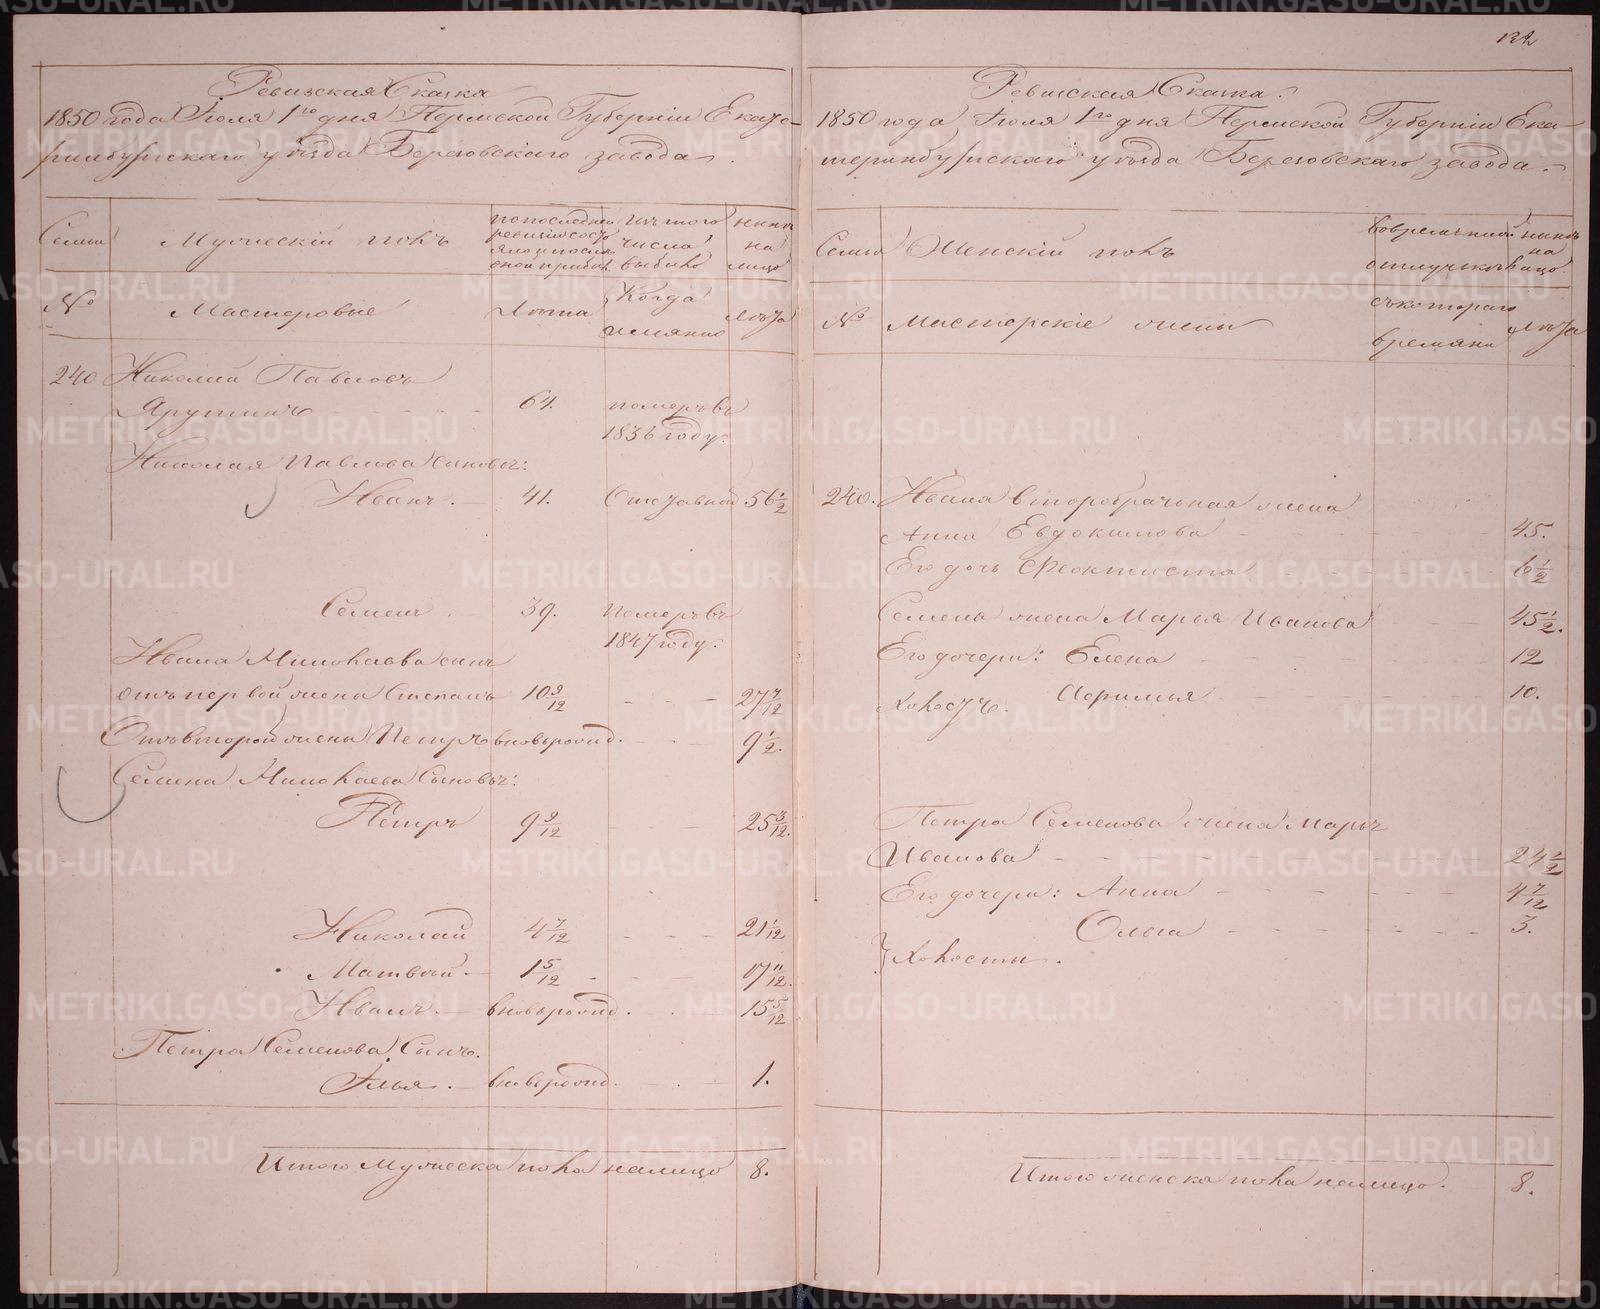 132
Ревизская Сказка
1850 года Іюля 1го дня Пермской Губерніи Екате-
ринбургскаго уѣзда Березовскаго завода.
Семьи
Мужескій полъ
по последней ревизіи состояло и после оной прибыло
изъ того числа выбыло
нынѣ на лицо
№
Мастеровые
Лѣта
Когда имянно
Лѣта
240 Николай Павловъ
Ярутинъ 64. померъ въ
1836 году.
Николая Павлова сыновья:
Иванъ. 41. Отставной 56 1/2
Семенъ 39. померъ въ
1847 году.
Ивана Николаева сынъ
отъ первой жены Степанъ 10 9/12 27 7/12
Отъ второй жены Петръ вновьрожд. 9 1/2.
Семена Николаева Сыновья:
Петръ 9 9/12 25 3/12.
Николай 4 7/12 21 1/12
Матвѣй. 1 5/12 17 11/12.
Иванъ. вновьрожд. 15 5/12
Петра Семенова Сынъ.
Илья. вновьрожд. 1.
Итого мужеска пола налицо 8.
Ревизская Сказка.
1850 года Іюля 1го дня Пермской Губерніи Ека-
теринбургскаго уѣзда Березовскаго завода.
Семьи
Женскій полъ
во временной отлучкѣ
нынѣ на лицо
№
Мастерскіе жены
съ котораго времяни
Лѣта
240. Ивана второбрачная жена
Анна Евдокимова 45.
Его дочь Феоктиста 6 1/2
Семена жена Марья Иванова 45 1/2.
Его дочери: Елена 12
Холостъ. Афимья 10.
Петра Семенова жена Марья
Иванова 24 1/2
Его дочери: Анна 4 7/12
Ольга 3.
Холосты.
Итого женска пола налицо. 8.
METRIKI.GASO-URAL.RU